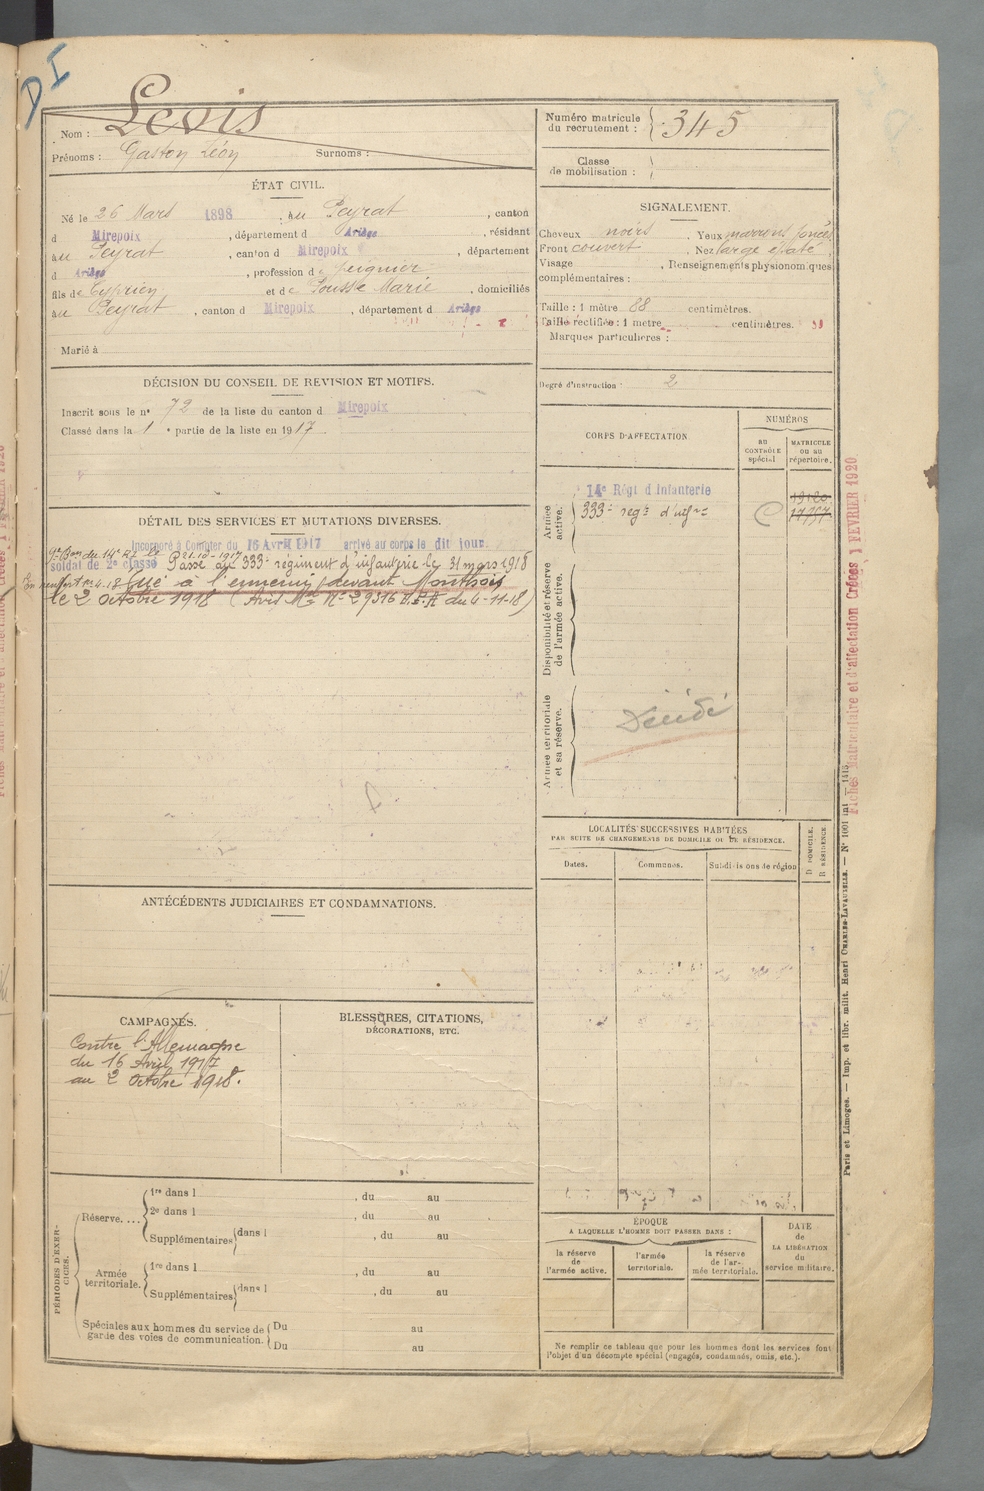 DI
Nom : Levis
Prénoms : Gaston Léon Surnoms :
Numéro matricule du recrutement : 345
Classe de mobilisation :
ÉTAT CIVIL.
Né le 26 Mars 1898, au Peyrat, canton
d Mirepoix, département d Ariège, résidant
au Peyrat, canton d Mirepoix, département
d Ariège, profession de peignier
fils de Cyprien et de Pousse Marie, domiciliés
au Peyrat, canton d Mirepoix, département d Ariège
Marié à
SIGNALEMENT.
Cheveux noirs. Yeux marrons foncés
Front couvert. Nez large épaté
Visage, Renseignements physionomiques
complémentaires :
Taille : 1 mètre 88 centimètres.
Taille rectifiée : 1 mètre centimètres.
Marques particulières :
Degré d'instruction : 2
DÉCISION DU CONSEIL DE REVISION ET MOTIFS.
Inscrit sous le n° 72 de la liste du canton d Mirepoix
Classé dans la 1e partie de la liste en 1917
CORPS D'AFFECTATION
NUMÉROS
au CONTRÔLE spécial
MATRICULE ou au répertoire.
Armée active.
14e Régt d'Infanterie
333e régt d'infrie
Disponibilité et réserve de l'armée active.
Armée territoriale et sa réserve.
Décédé
DÉTAIL DES SERVICES ET MUTATIONS DIVERSES.
Incorporé à Compter du 16 Avril 1917 arrivé au corps le dit jour.
9e Bon du 14e RI le 21-10-1917
soldat de 2e classe Passé au 333e régiment d'infanterie le 31 mars 1918
Tué à l'ennemi devant Monthois
le 2 octobre 1918 (Avis Mel N° 29516 du 4-11-18)
LOCALITÉS SUCCESSIVES HABITÉES
PAR SUITE DE CHANGEMENTS DE DOMICILE OU DE RÉSIDENCE.
Dates. Communes. Subdivisions de région
D DOMICILE. R RÉSIDENCE
ANTÉCÉDENTS JUDICIAIRES ET CONDAMNATIONS.
CAMPAGNES.
Contre l'Allemagne
du 16 Avril 1917
au 2 Octobre 1918.
BLESSURES, CITATIONS,
DÉCORATIONS, ETC.
PÉRIODES D'EXERCICES.
Réserve....
1re dans l, du au
2e dans l, du au
Supplémentaires dans l, du au
Armée territoriale.
1re dans l, du au
Supplémentaires dans l, du au
Spéciales aux hommes du service de garde des voies de communication.
Du au
Du au
ÉPOQUE
A LAQUELLE L'HOMME DOIT PASSER DANS :
la réserve de l'armée active.
l'armée territoriale.
la réserve de l'armée territoriale.
DATE de LA LIBÉRATION du service militaire.
Ne remplir ce tableau que pour les hommes dont les services font
l'objet d'un décompte spécial (engagés, condamnés, omis, etc.).
Fiches Matriculaire et d'affectation Créées 1 FEVRIER 1920
Paris et Limoges. — Imp. et libr. milit. Henri CHARLES-LAVAUZELLE. — N° 1001 — 1515.